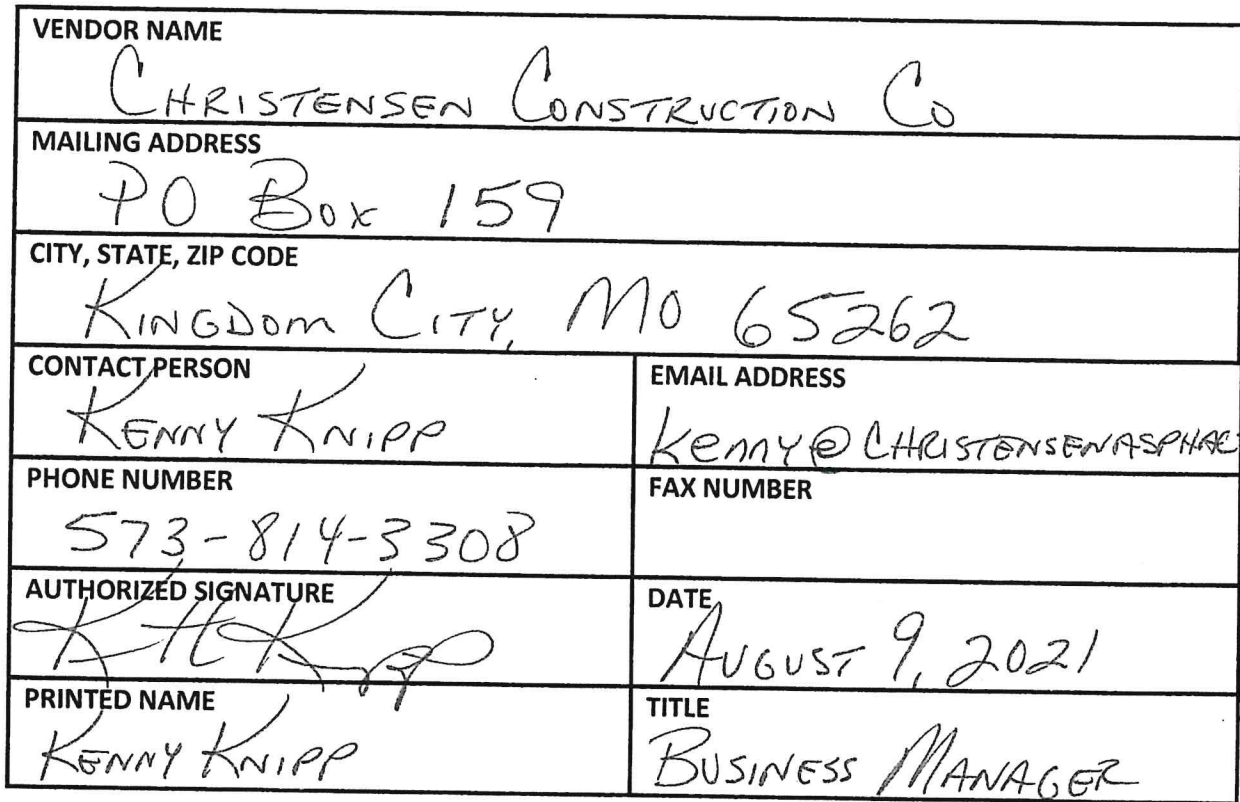 VENDOR NAME
CHRISTENSEN CONSTRUCTION CO
MAILING ADDRESS
PO Box 159
CITY, STATE, ZIP CODE
KINGDOM CITY, MO 65262
CONTACT PERSON
KENNY KNIPP
EMAIL ADDRESS
Kenny@CHRISTENSENASPHAL
PHONE NUMBER
573-814-3308
FAX NUMBER
AUTHORIZED SIGNATURE
DATE
AUGUST 9, 2021
PRINTED NAME
KENNY KNIPP
TITLE
BUSINESS MANAGER